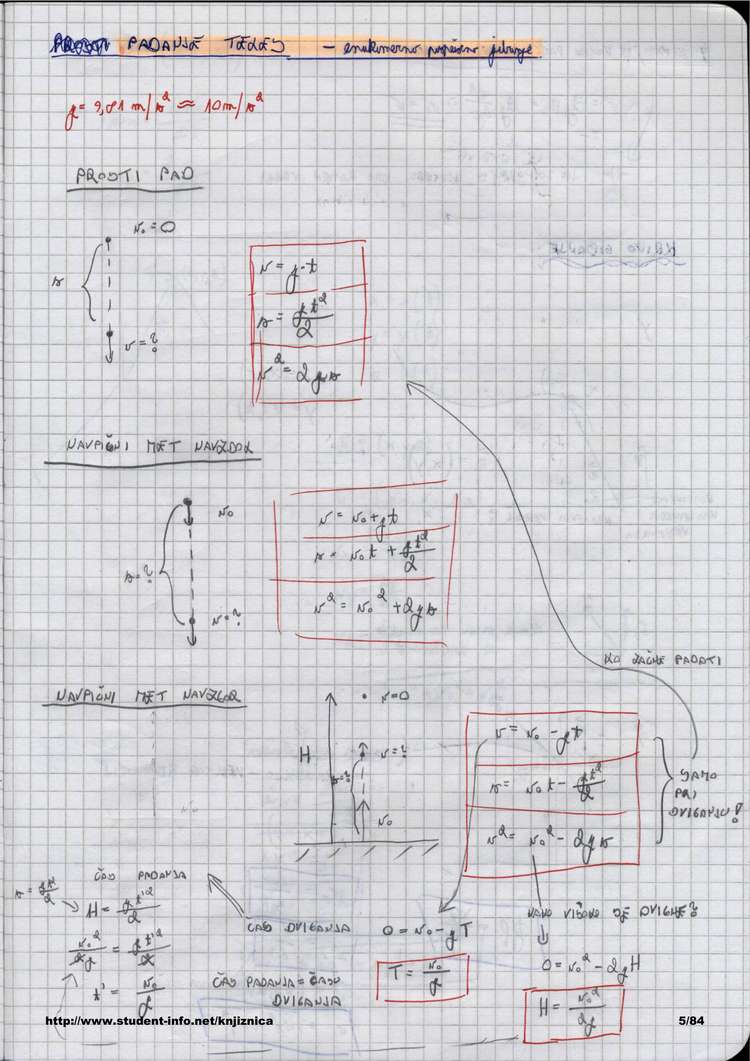 PADANJE TELES – enakomerno pospešeno gibanje
g = 9,81 m/s² ≈ 10 m/s²
PROSTI PAD
v₀ = 0
s
v = ?
v = g·t
s = gt²/2
v² = 2gs
NAVPIČNI MET NAVZDOL
v₀
s = ?
v = ?
v = v₀ + gt
s = v₀t + gt²/2
v² = v₀² + 2gs
KO ZAČNE PADATI
NAVPIČNI MET NAVZGOR
v = 0
H
v = ?
s = ?
v₀
v = v₀ - gt
s = v₀t - gt²/2
v² = v₀² - 2gs
SAMO
PRI
DVIGANJU!
ČAS PADANJA
s = gt²/2
H = gt'²/2
v₀²/2g = gt'²/2
t' = v₀/g
ČAS DVIGANJA
ČAS PADANJA = ČASU
DVIGANJA
0 = v₀ - gT
T = v₀/g
KAKO VISOKO SE DVIGNE?
0 = v₀² - 2gH
H = v₀²/2g
KRIVO GIBANJE
http://www.student-info.net/knjiznica
5/84